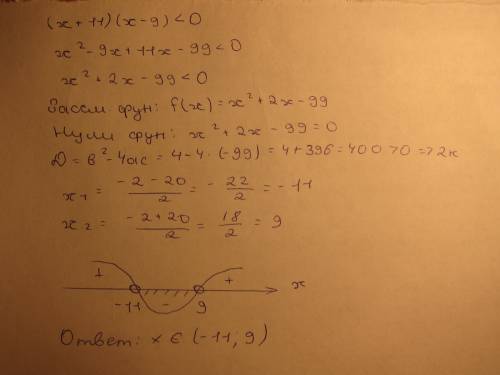 (x + 11)(x - 9) < 0
x² - 9x + 11x - 99 < 0
x² + 2x - 99 < 0
Рассм. фун: f(x) = x² + 2x - 99
Нули фун: x² + 2x - 99 = 0
D = b² - 4ac = 4 - 4 · (-99) = 4 + 396 = 400 > 0 => 2к
x₁ = (-2 - 20)/2 = - 22/2 = - 11
x₂ = (-2 + 20)/2 = 18/2 = 9
+ - + x
-11 9
Ответ: x ∈ (-11; 9)